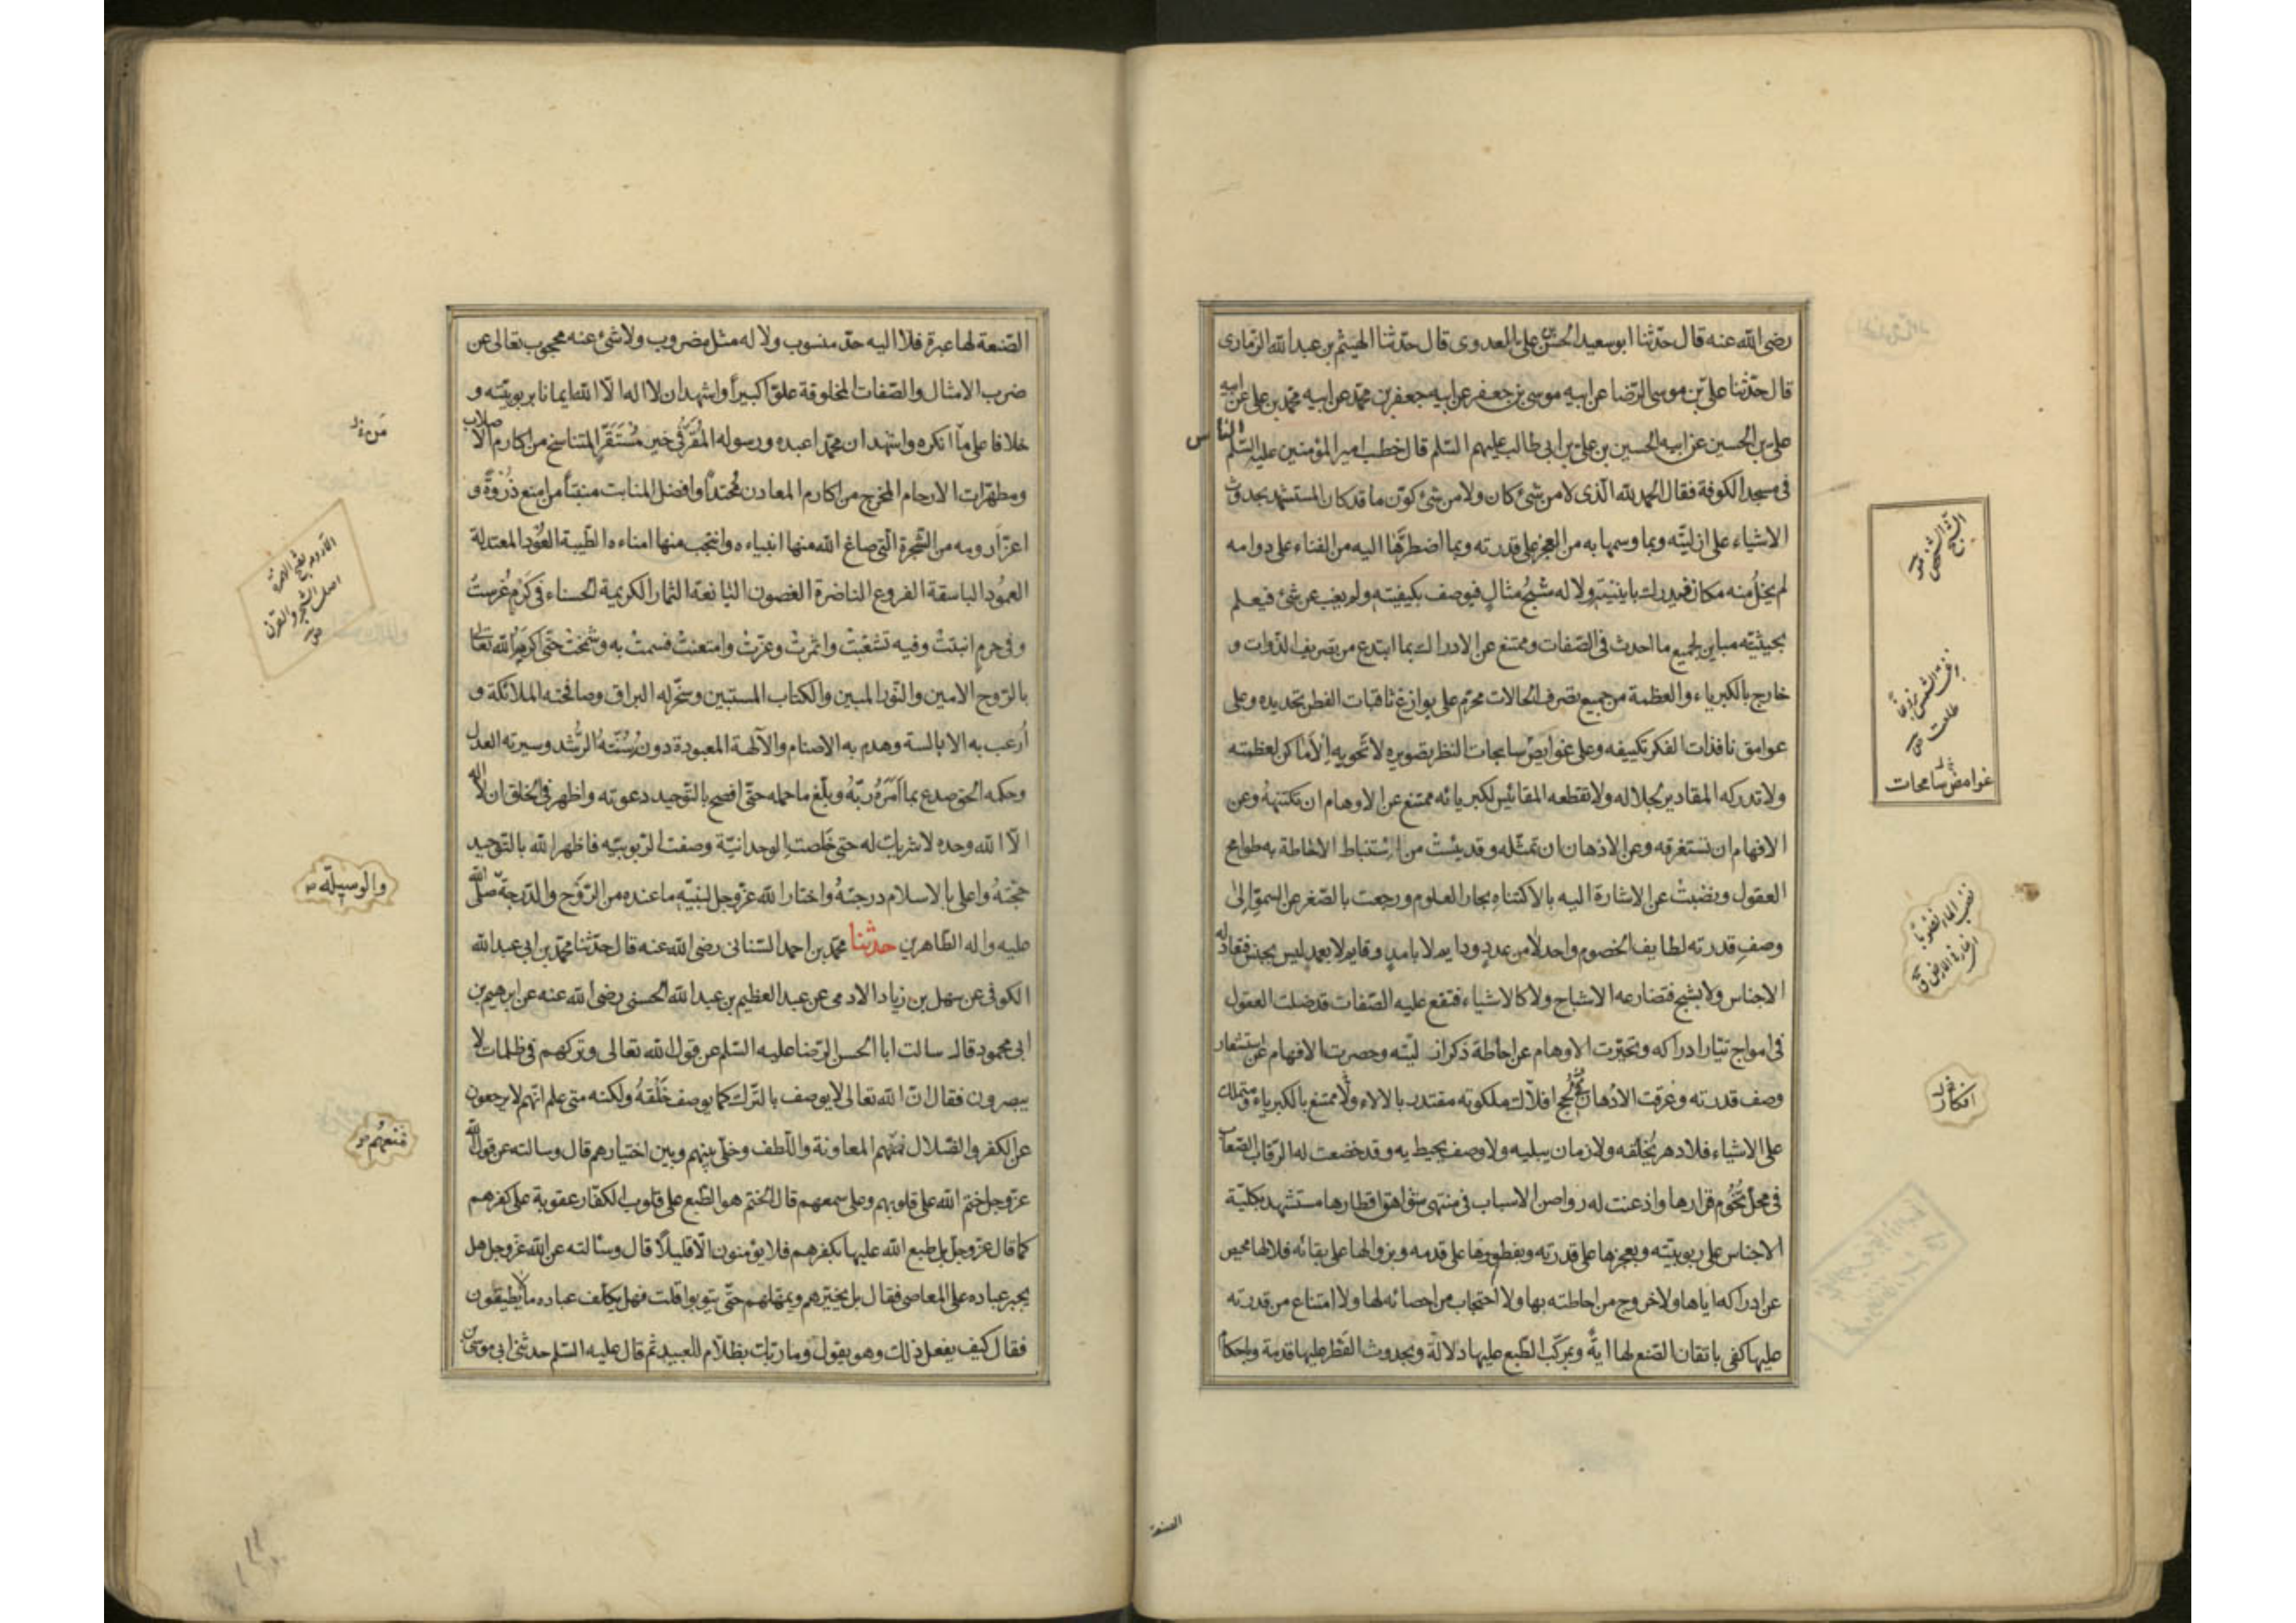 رضی الله عنه قال حدّثنا ابو سعيد الحسن بن علی العدوی قال حدّثنا الهيثم بن عبد الله الرمّاری
قال حدّثنا علی بن موسی الرّضا عن ابيه موسی بن جعفر عن ابيه جعفر بن محمّد عن ابيه محمّد بن علی عن ابيه
علی بن الحسين عن ابيه الحسين بن علی بن ابی طالب عليهم السّلم قال خطب امير المؤمنين عليه السّلم الناس
فی مسجد الكوفة فقال الحمد لله الّذی لا من شیء كان ولا من شیء كوّن ما قد كان المستشهد بحدوث
الاشياء علی ازليّته وبما وسمها به من العجز علی قدرته وبما اضطرّها اليه من الفناء علی دوامه
لم يخل منه مكان فيدرك باينيّته ولا له شبح مثال فيوصف بكيفيته ولم يغب عن شیء فيعلم
بحيثيّته مباين لجميع ما احدث فی الصّفات وممتنع عن الادراك بما ابتدع من تصريف الذّوات و
خارج بالكبرياء والعظمة من جميع تصرف الحالات محرّم علی بوازغ ثاقبات الفطن تحديده وعلی
عوامق نافذات الفكر تكييفه وعلی غوايص سابحات النظر تصويره لا تحويه الاماكن لعظمته
ولا تدركه المقادير لجلاله ولا تقطعه المقائيس لكبريائه ممتنع عن الاوهام ان تكتنهه وعن
الافهام ان تستغرقه وعن الاذهان ان تمثّله وقد يئست من استنباط الاحاطة به طوامح
العقول ونضبت عن الاشارة اليه بالاكتناه بحار العلوم ورجعت بالصّغر عن السموّ الی
وصف قدرته لطايف الخصوم واحد لا من عدد ودايم لا بامد وقايم لا بعمد ليس بجنس فتعادله
الاجناس ولا بشبح فتضارعه الاشباح ولا كالاشياء فتقع عليه الصّفات قد ضلت العقول
فی امواج تيّار ادراكه وتحيّرت الاوهام عن احاطة ذكر ازليّته وحصرت الافهام عن استشعار
وصف قدرته وغرقت الاذهان فی لجج افلاك ملكوته مقتدر بالالاء وممتنع بالكبرياء ومتملك
علی الاشياء فلا دهر يخلقه ولا زمان يبليه ولا وصف يحيط به وقد خضعت له الرّقاب الصّعاب
فی محلّ تخوم قرارها واذعنت له رواصن الاسباب فی منتهی شواهق اقطارها مستشهد بكليّة
الاجناس علی ربوبيّته وبعجزها علی قدرته وبفطورها علی قدمه وبزوالها علی بقائه فلا لها محيص
عن ادراكه اياها ولا خروج من احاطته بها ولا احتجاب من احصائه لها ولا امتناع من قدرته
عليها كفی باتقان الصّنع لها اية وبمركّب الطّبع عليها دلالة وبحدوث الفطر عليها قدمة وباحكام
غوامض سابحات
بزغت الشمس بزوغا
طلعت
انكار
الصنعة
الصّنعة لها عبرة فلا اليه حدّ منسوب ولا له مثل مضروب ولا شیء عنه محجوب تعالی عن
ضرب الامثال والصّفات المخلوقة علوّا كبيراً واشهد ان لا اله الّا الله ايمانا بربوبيّته و
خلافا علی ما انكره واشهد ان محمّدا عبده ورسوله المقرّ فی خير مستقرّ المتناسخ من اكارم الاصلاب
ومطهّرات الارحام المخرج من اكارم المعادن محتداً وافضل المنابت منبتاً من امنع ذروة و
اعزّ ارومه من الشّجرة الّتی صاغ الله منها انبياءه وانتجب منها امناءه الطّيبة العود المعتدلة
العمود الباسقة الفروع الناضرة الغصون اليانعة الثمار الكريمة الحسناء فی كرم غرست
وفی حرم انبتت وفيه تشعّبت واثمرت وعزّت وامتنعت فسمت به وشمخت حتّی اكرمه الله تعالی
بالرّوح الامين والنّور المبين والكتاب المستبين وسخّر له البراق وصافحته الملائكة و
ارعب به الابالسة وهدم به الاصنام والآلهة المعبودة دونه سنّته الرّشد وسيرته العدل
وحكمه الحق صدع بما امره ربّه وبلّغ ما حمله حتّی افصح بالتّوحيد دعوته واظهر فی الخلق ان لا اله
الّا الله وحده لا شريك له حتی خلصت الوحدانيّة وصفت الربوبيّة فاظهر الله بالتّوحيد
حجّته واعلی بالاسلام درجته واختار الله عزّوجل لنبيّه ما عنده من الرّوح والدّرجة صلّی الله
عليه واله الطّاهرين حدثنا محمّد بن احمد السّنانی رضی الله عنه قال حدّثنا محمّد بن ابی عبد الله
الكوفی عن سهل بن زياد الادمی عن عبد العظيم بن عبد الله الحسنی رضی الله عنه عن ابرهيم بن
ابی محمود قال سالت ابا الحسن الرّضا عليه السّلم عن قول الله تعالی وتركهم فی ظلمات لا
يبصرون فقال انّ الله تعالی لا يوصف بالتّرك كما يوصف خلقه ولكنه متی علم انّهم لا يرجعون
عن الكفر والضّلال منعهم المعاونة واللّطف وخلّی بينهم وبين اختيارهم قال وسالته عن قول الله
عزّوجل ختم الله علی قلوبهم وعلی سمعهم قال الختم هو الطّبع علی قلوب الكفّار عقوبة علی كفرهم
كما قال عزّوجلّ بل طبع الله عليها بكفرهم فلا يؤمنون الّا قليلاً قال وسالته عن الله عزّوجل هل
يجبر عباده علی المعاصی فقال بل يخيّرهم ويمهلهم حتّی يتوبوا قلت فهل يكلّف عباده ما لا يطيقون
فقال كيف يفعل ذلك وهو يقول وما ربّك بظلّام للعبيد ثم قال عليه السّلم حدثنی ابی موسی بن
والوسيلة
فمنعهم